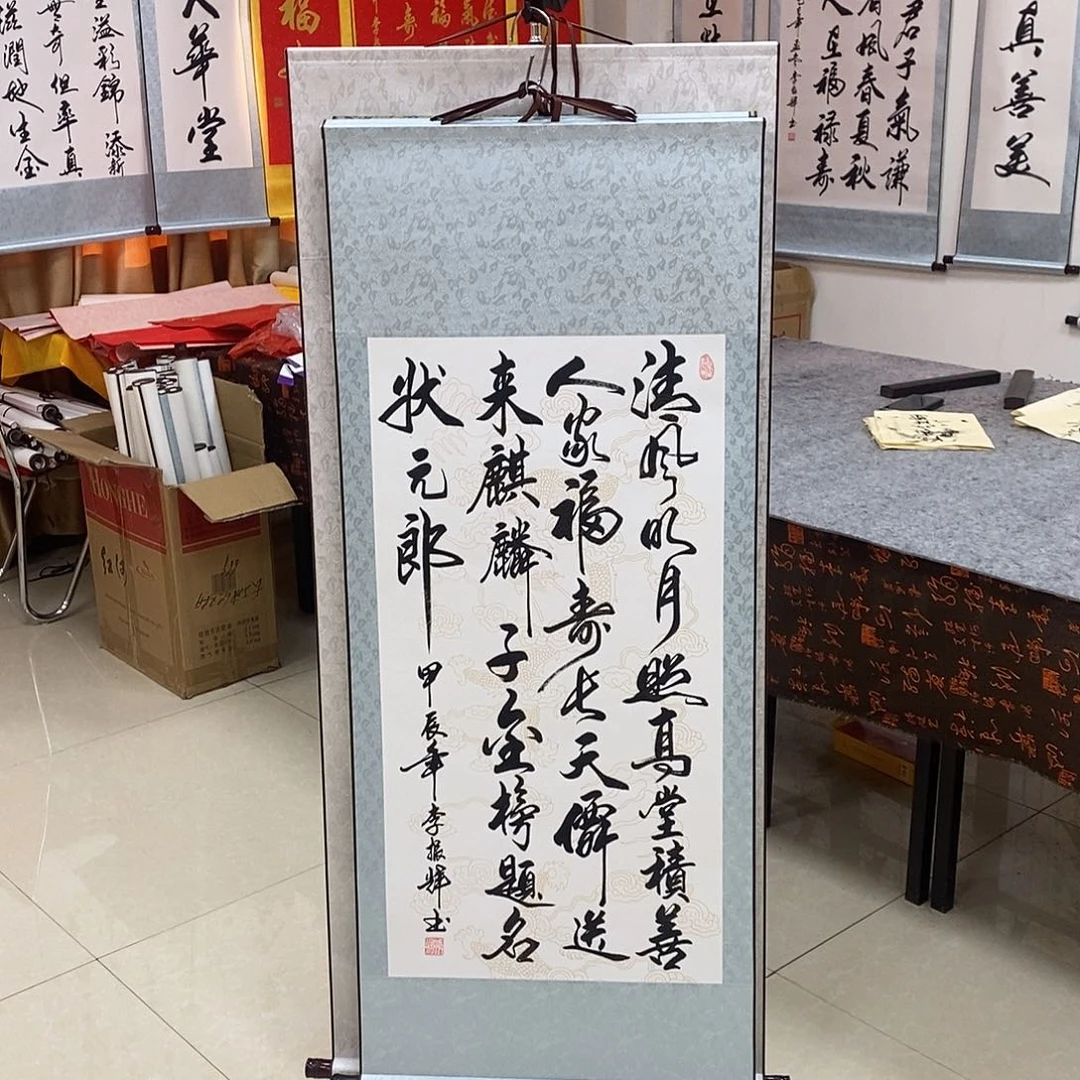 清风明月照高堂積善
人家福寿长天僊送
来麒麟子金榜题名
状元郎
甲辰年李振辉书
溢彩錦添新
奇但率真
滋潤地生金
華堂
福
君子氣謙
風春夏秋
福禄寿
真善美
HONGHE